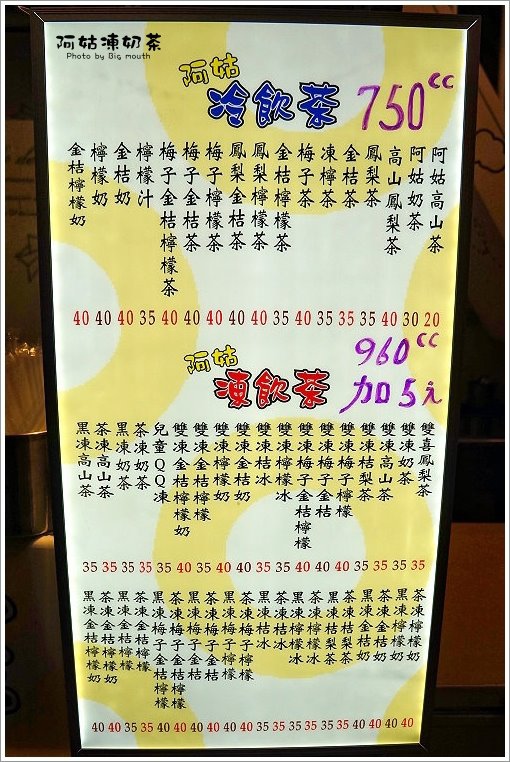 阿姑凍奶茶
Photo by Big mouth
阿姑
冷飲茶 750cc
阿姑高山茶
阿姑奶茶
高山鳳梨茶
鳳梨茶
金桔茶
凍檸茶
梅子茶
金桔檸檬茶
鳳梨檸檬茶
鳳梨金桔茶
梅子檸檬茶
梅子金桔茶
梅子金桔檸檬茶
檸檬汁
金桔奶
檸檬奶
金桔檸檬奶
40 40 40 35 40 40 40 40 40 35 40 35 35 35 40 30 20
阿姑
凍飲茶
960cc
加5元
雙喜鳳梨茶
雙凍奶茶
雙凍高山茶
雙凍桔梨茶
雙凍梅子檸檬
雙凍梅子金桔
雙凍梅子金桔檸檬
雙凍檸檬冰
雙凍桔冰
雙凍金桔奶
雙凍檸檬奶
雙凍金桔檸檬
雙凍金桔檸檬奶
兒童QQ凍
茶凍奶茶
黑凍奶茶
茶凍高山茶
黑凍高山茶
35 35 35 35 35 40 35 40 40 35 35 40 40 40 35 35 35 35
茶凍檸檬奶
黑凍檸檬奶
茶凍金桔奶
黑凍金桔奶
茶凍桔梨茶
黑凍桔梨茶
茶凍檸檬冰
黑凍檸檬冰
茶凍桔冰
黑凍桔冰
茶凍梅子檸檬
黑凍梅子檸檬
茶凍梅子金桔
黑凍梅子金桔
茶凍梅子金桔檸檬
黑凍梅子金桔檸檬
茶凍金桔檸檬
黑凍金桔檸檬
茶凍金桔檸檬奶
黑凍金桔檸檬奶
40 40 35 35 40 40 40 40 40 40 35 35 35 35 40 40 40 40 40 40